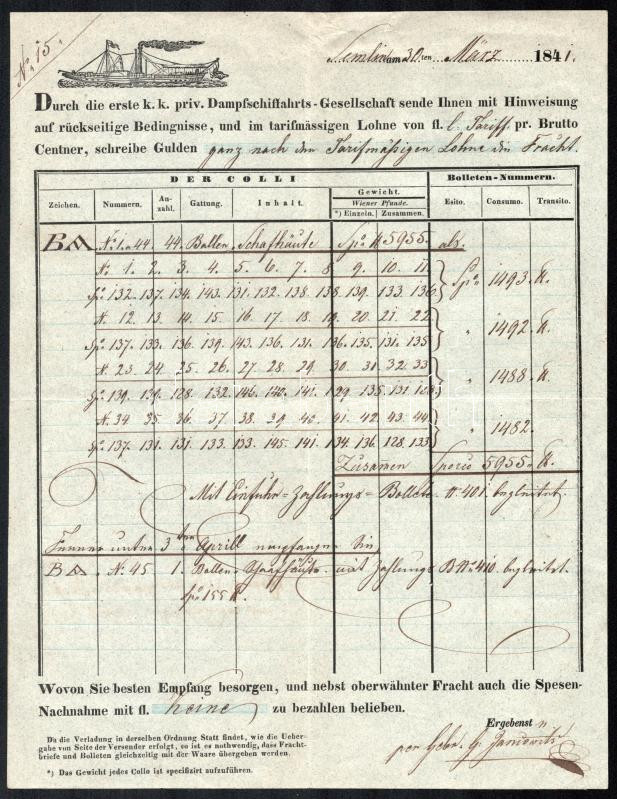 No. 15.
Semlin am 30 ten März 1841.
Durch die erste k. k. priv. Dampfschiffahrts-Gesellschaft sende Ihnen mit Hinweisung
auf rückseitige Bedingnisse, und im tarifmässigen Lohne von fl. l. Tariff pr. Brutto
Centner, schreibe Gulden ganz nach dem Tarifmäßigen Lohne die Fracht.
DER COLLI Bolleten-Nummern.
Zeichen. Nummern. Anzahl. Gattung. Inhalt. Gewicht. Wiener Pfunde. *) Einzeln. Zusammen. Esito. Consumo. Transito.
BM No. 1. a 44 44. Ballen Schafhäute Spo. ℔ 5955. als.
No. 1. 2. 3. 4. 5. 6. 7. 8 9. 10. 11
Spo. 132. 137. 134. 143. 131. 132. 138. 138. 139. 133. 136. Spo. 1493. ℔.
N. 12. 13. 14. 15. 16. 17. 18. 19. 20. 21. 22
Spo. 137. 133. 136. 139. 143. 136. 131. 136. 135. 131. 135 " 1492. ℔.
N. 23. 24. 25. 26. 27. 28. 29. 30. 31. 32. 33
Spo. 139. 139. 128. 132. 146. 140. 141. 129. 135. 131. " 1488. ℔.
N. 34 35. 36. 37. 38. 39. 40. 41. 42. 43. 44
Spo. 137. 131. 131. 133. 133. 145. 141. 134. 136. 128. 133 " 1482.
Zusamen Sporco 5955. ℔.
Mit Einfuhr-Zahlungs-Bollete No. 401 begleitet.
Ferner unter 3ten Aprill empfangen Sie
BM No. 45 1. Ballen Schaafhäute mit Zahlungs B No. 410 begleitet.
Spo 155 ℔.
Wovon Sie besten Empfang besorgen, und nebst oberwähnter Fracht auch die Spesen-
Nachnahme mit fl. keine zu bezahlen belieben.
Ergebenst
Da die Verladung in derselben Ordnung Statt findet, wie die Ueber-
gabe von Seite der Versender erfolgt, so ist es nothwendig, dass Fracht-
briefe und Bolleten gleichzeitig mit der Waare übergeben werden.
per Gebr. G. Janowitz
*) Das Gewicht jedes Collo ist specifizirt aufzuführen.